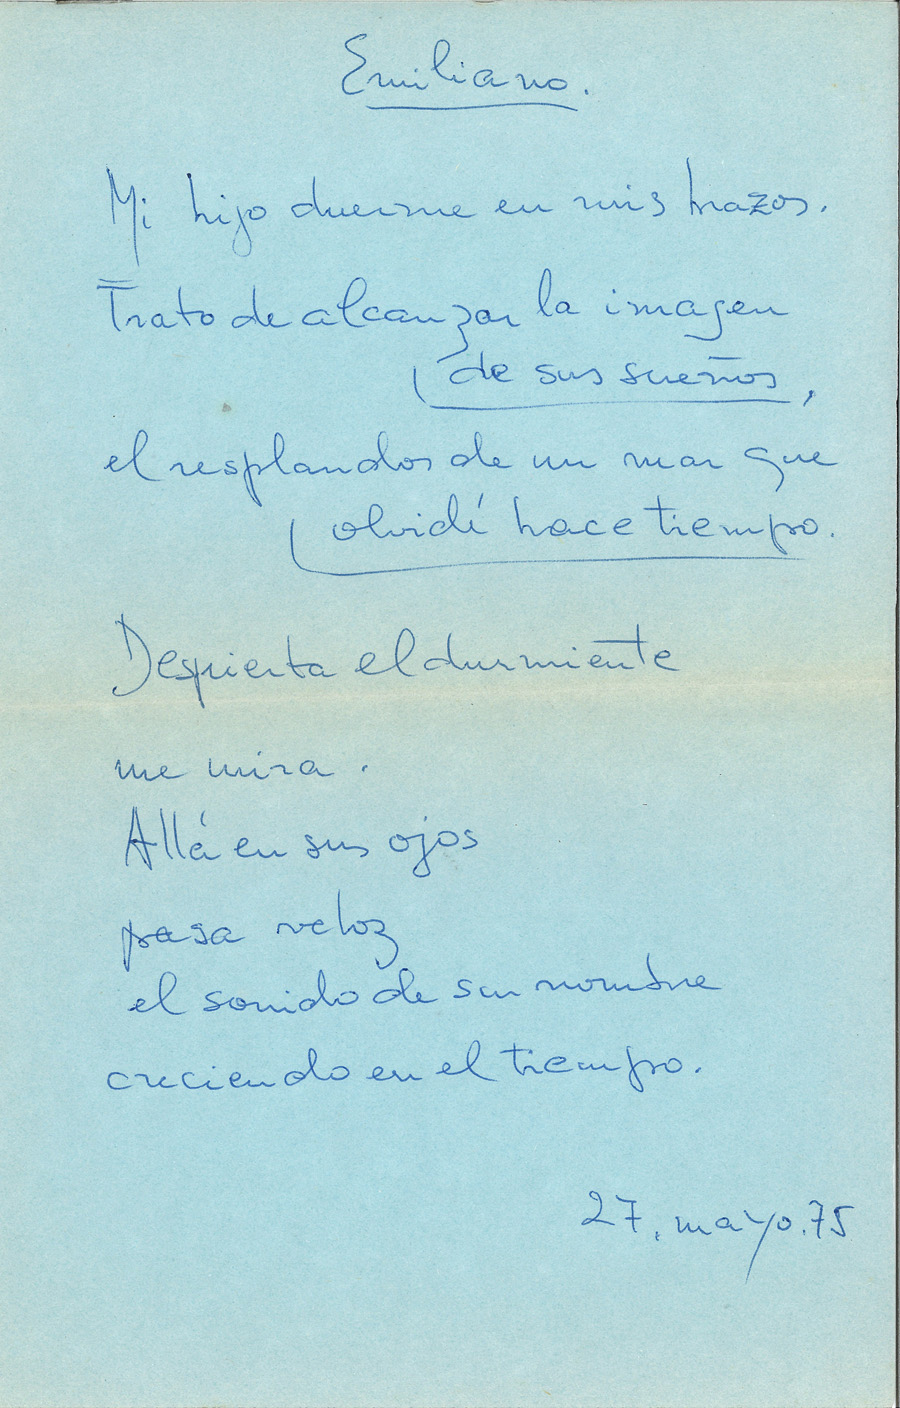 Emiliano.
Mi hijo duerme en mis brazos.
Trato de alcanzar la imagen
de sus sueños,
el resplandor de un mar que
olvidé hace tiempo.
Despierta el durmiente
me mira.
Allá en sus ojos
pasa veloz
el sonido de su nombre
creciendo en el tiempo.
27. mayo. 75